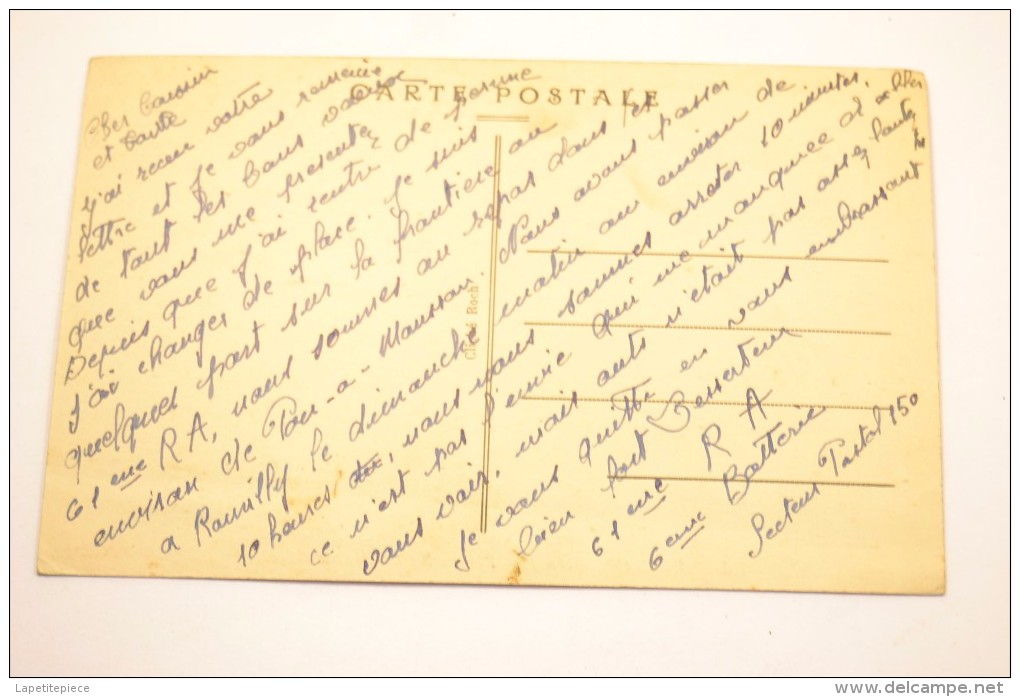 CARTE POSTALE
Cher Cousin
et toute
j'ai recu votre
lettre et je vous remercie
de tout les bons voeux
que vous me presentez
Depuis que j'ai rentre de perme
j'ai changer de place. Je suis
quelques part sur la frontiere au
61 eme RA, nous sommes au repos dans les
environ de Pon-a-Mousson. Nous avons passer
a Rumilly le dimanche matin au environ de
10 heures, nous nous sommes arreter 10 minutes,
ce n'est pas l'envie qui me manquee d'aller
vous voir, mais auts n'etait pas assez lontemps
Je vous quitte en vous embrassant
bien fort Besserteur
61 eme R A
6 eme Batterie
Secteur Postal 150
Cliché Roch
Lapetitepiece
www.delcampe.net